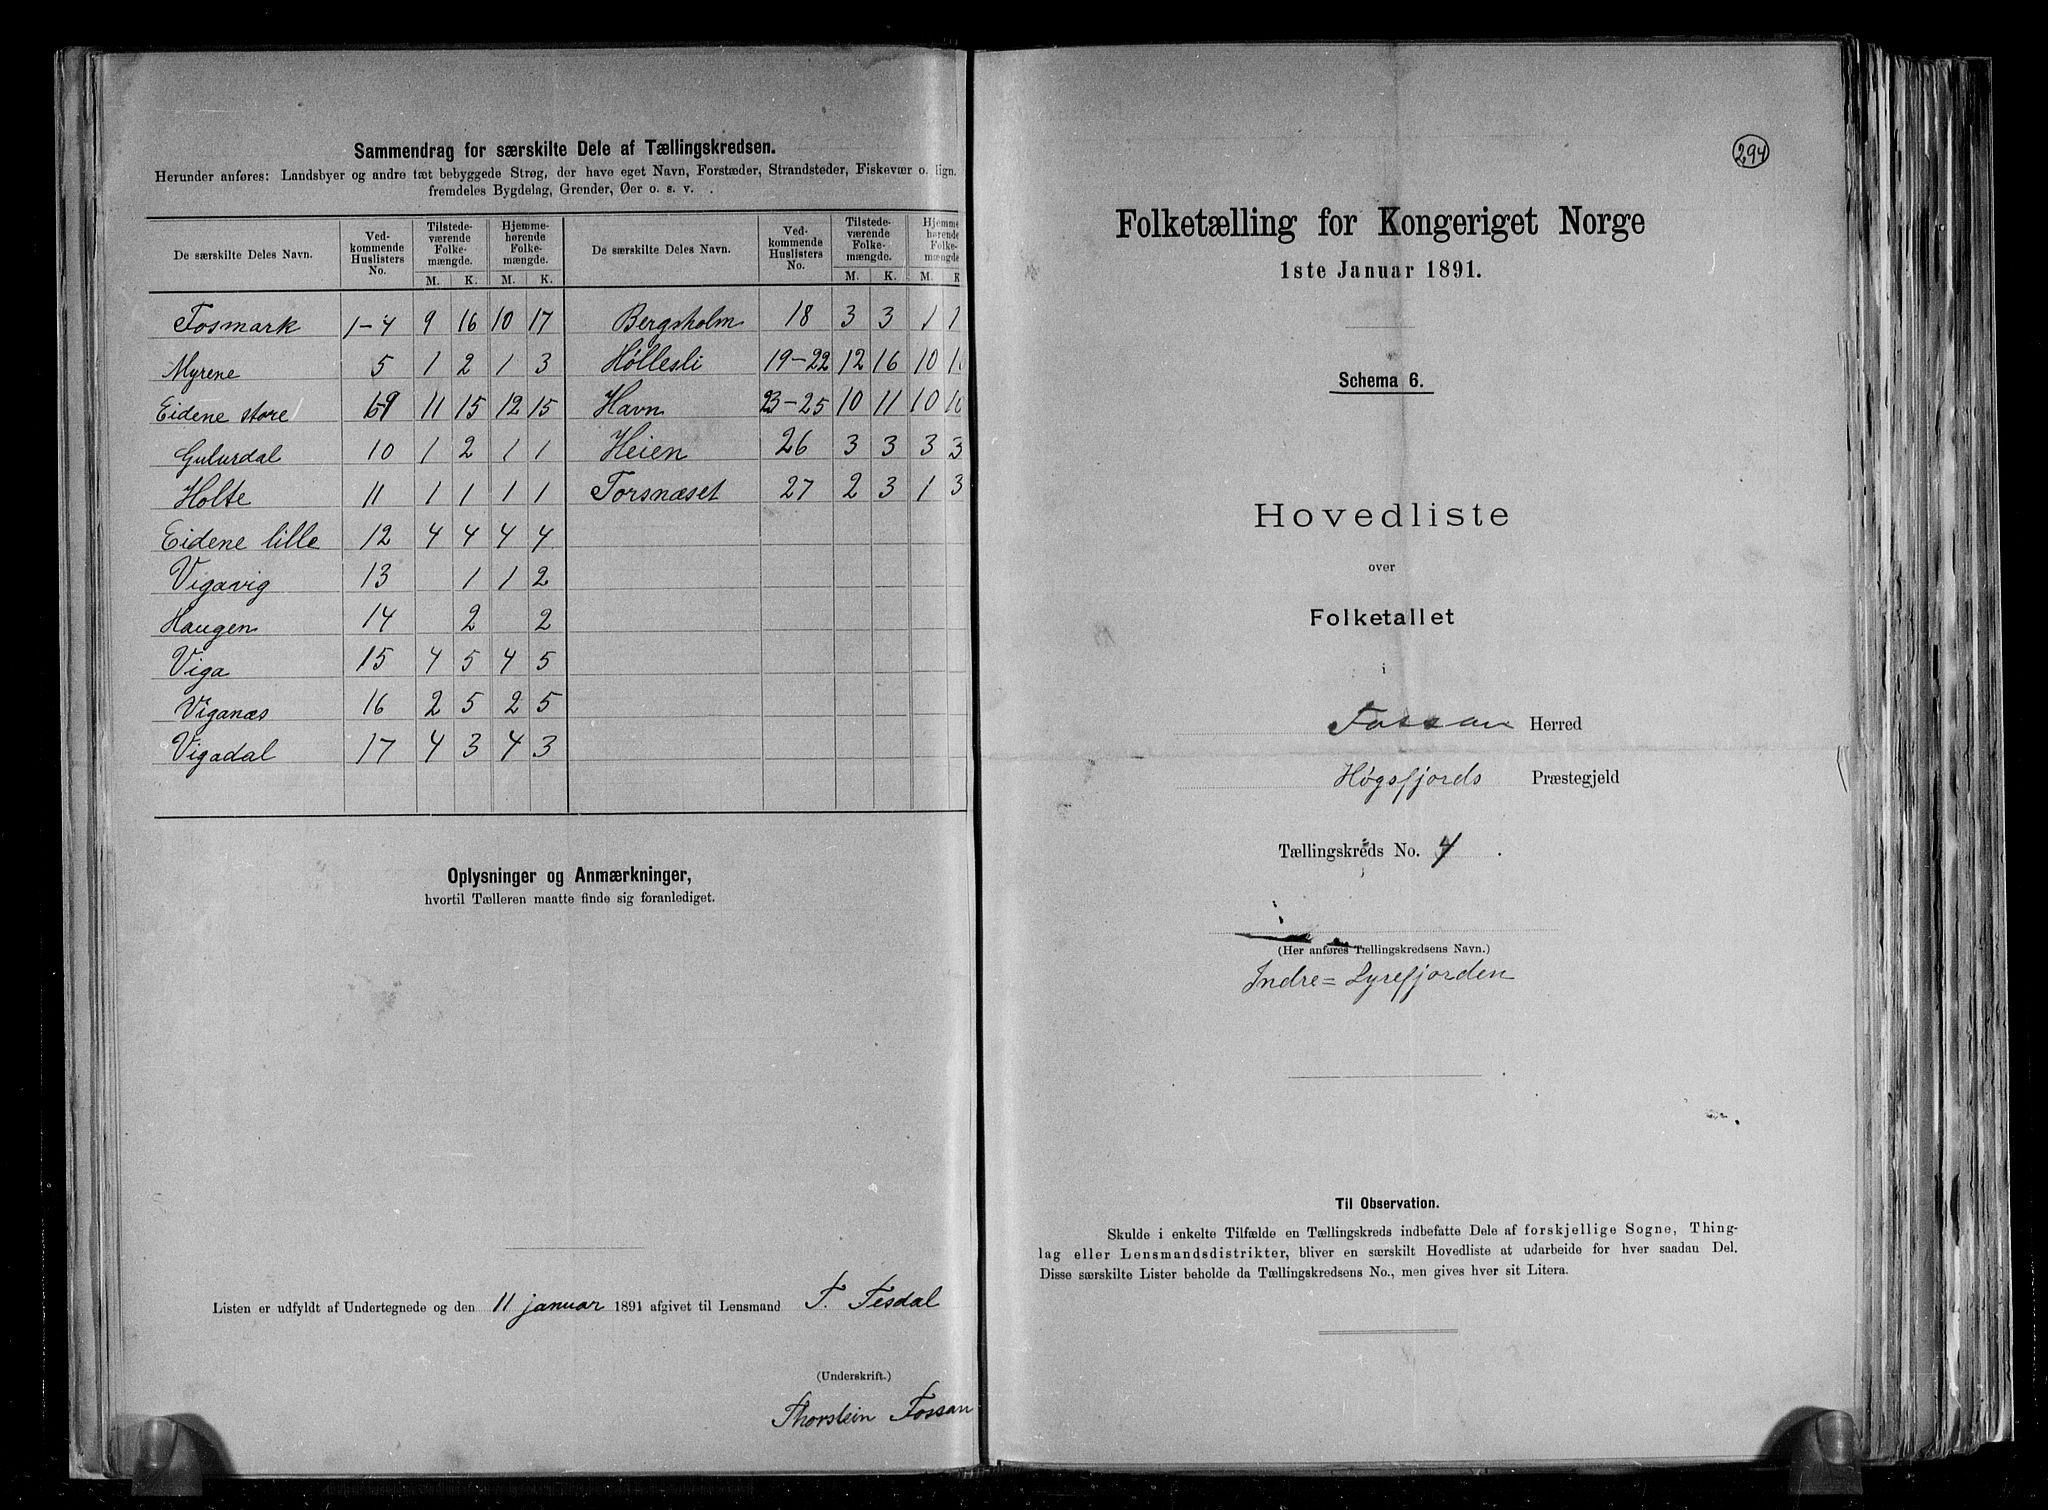 Sammendrag for særskilte Dele af Tællingskredsen.
Herunder anføres: Landsbyer og andre tæt bebyggede Strøg, der have eget Navn, Forstæder, Strandsteder, Fiskevær o. lign.
fremdeles Bygdelag, Grender, Øer o. s. v.
De særskilte Deles Navn. Ved-kommende Huslisters No. Tilstede-værende Folke-mængde. Hjemme-hørende Folke-mængde. De særskilte Deles Navn. Ved-kommende Huslisters No. Tilstede-værende Folke-mængde. Hjemme-hørende Folke-mængde
M. K. M. K. M. K. M. K
Fosmark 1-4 9 16 10 17 Bergsholm 18 3 3 1 1
Myrene 5 1 2 1 3 Høllesli 19-22 12 16 10
Eidene store 11 15 12 15 Havn 23-25 10 11 10
Gulurdal 10 1 2 1 1 Heien 26 3 3 3 3
Holte 11 1 1 1 1 Forsnæset 27 2 3 1 3
Eidene lille 12 4 4 4 4
Vigavig 13 1 1 2
Haugen 14 2 2
Viga 15 4 5 4 5
Viganæs 16 2 5 2 5
Vigadal 17 4 3 4 3
Oplysninger og Anmærkninger,
hvortil Tælleren maatte finde sig foranlediget.
Listen er udfyldt af Undertegnede og den 11 januar 1891 afgivet til Lensmand T. Tesdal
(Underskrift.)
Thorstein Fossan
294
Folketælling for Kongeriget Norge
1ste Januar 1891.
Schema 6.
Hovedliste
over
Folketallet
i
Fossan Herred
Høgsfjords Præstegjeld
Tællingskreds No. 4.
(Her anføres Tællingskredsens Navn.)
Indre= Lysefjorden
Til Observation.
Skulde i enkelte Tilfælde en Tællingskreds indbefatte Dele af forskjellige Sogne, Thing-
lag eller Lensmandsdistrikter, bliver en særskilt Hovedliste at udarbeide for hver saadan Del.
Disse særskilte Lister beholde da Tællingskredsens No., men gives hver sit Litera.